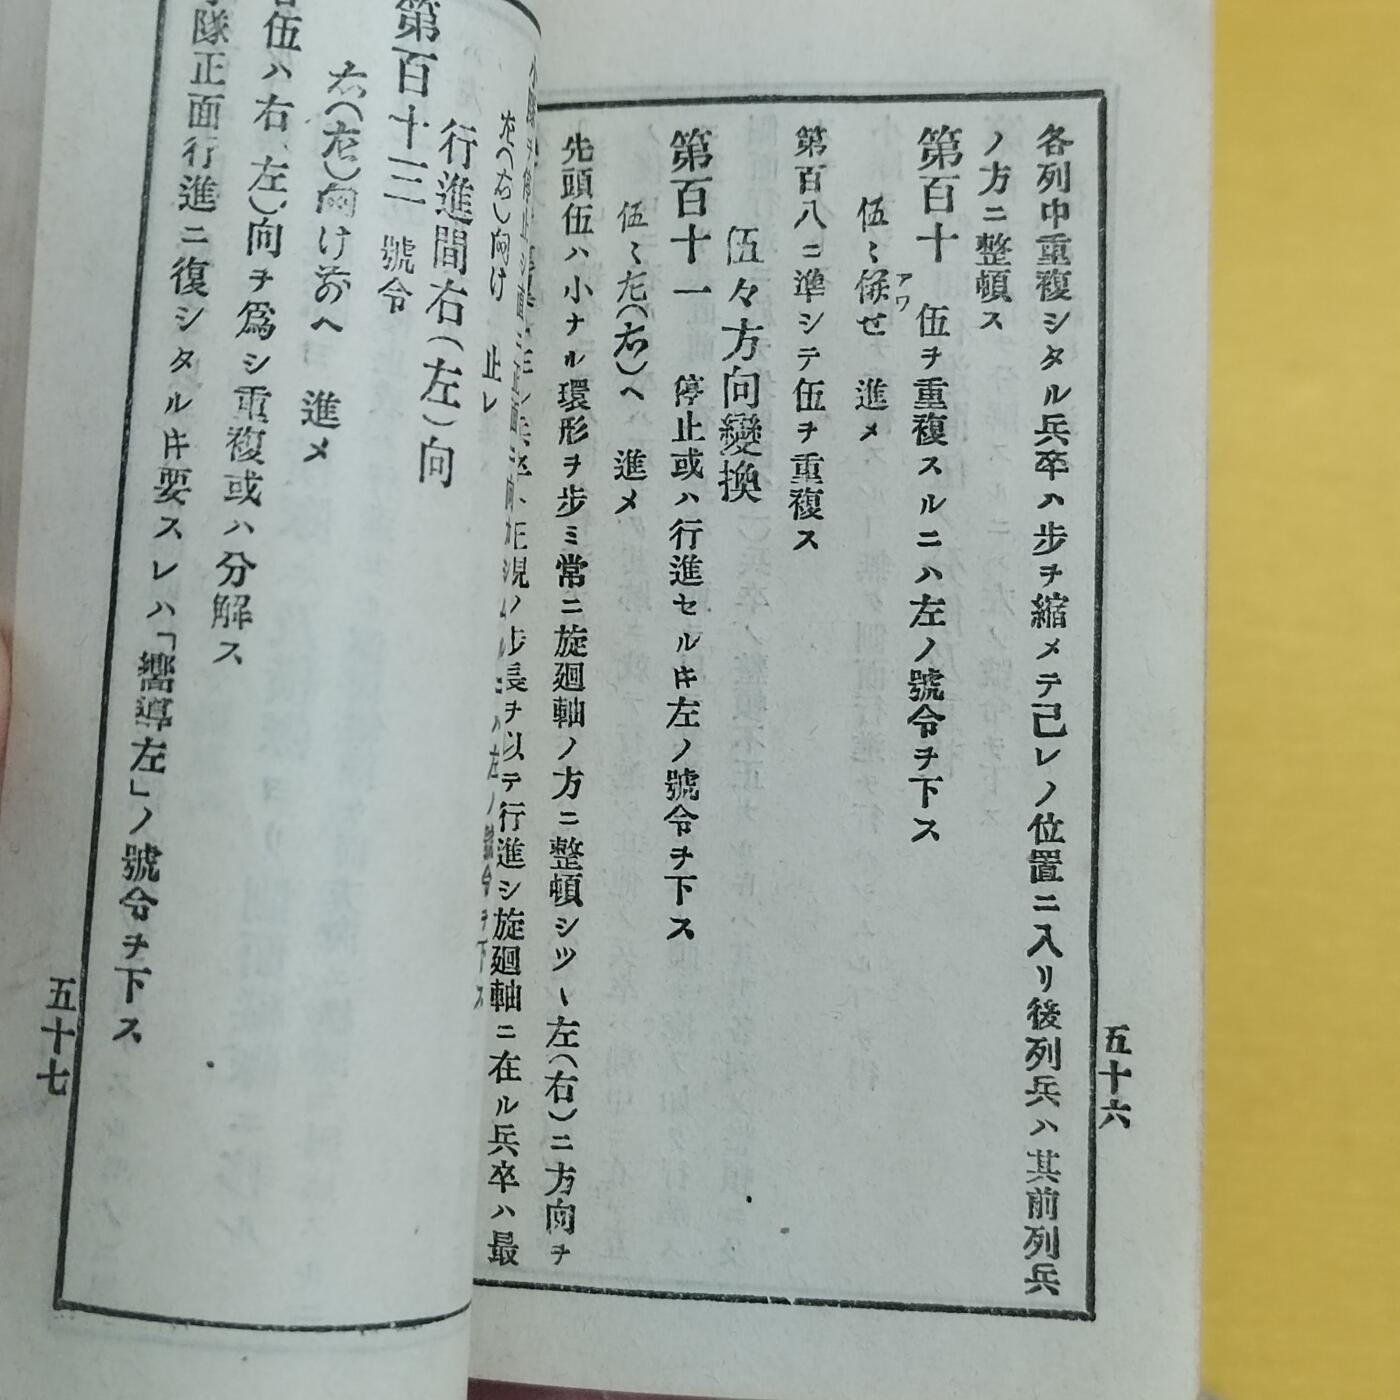 各列中重複シタル兵卒ハ步ヲ縮メテ己レノ位置ニ入リ後列兵ハ其前列兵
ノ方ニ整頓ス
第百十 伍ヲ重複スルニハ左ノ號令ヲ下ス
伍〻併せ 進メ
アワ
第百八ニ準シテ伍ヲ重複ス
伍々方向變換
第百十一 停止或ハ行進セル𪜈左ノ號令ヲ下ス
伍〻左(右)へ 進メ
先頭伍ハ小ナル環形ヲ步ミ常ニ旋廻軸ノ方ニ整頓シツヽ左(右)ニ方向ヲ
正規ノ步長ヲ以テ行進シ旋廻軸ニ在ル兵卒ハ最
五十六
左ノ號令ヲ下ス
左(右)向け 止レ
行進間右(左)向
第百十三 號令
右(左)向け前へ 進メ
伍ハ右(左)向ヲ爲シ重複或ハ分解ス
隊正面行進ニ復シタル𪜈要スレハ「嚮導左」ノ號令ヲ下ス
五十七